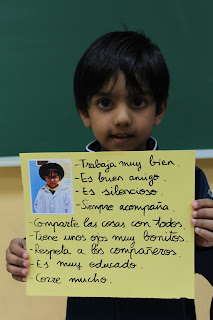 - Trabaja muy bien.
- Es buen amigo.
- Es silencioso.
- Siempre acompaña.
- Comparte las cosas con todos.
- Tiene unos ojos muy bonitos.
- Respeta a los compañeros.
- Es muy educado.
- Corre mucho.